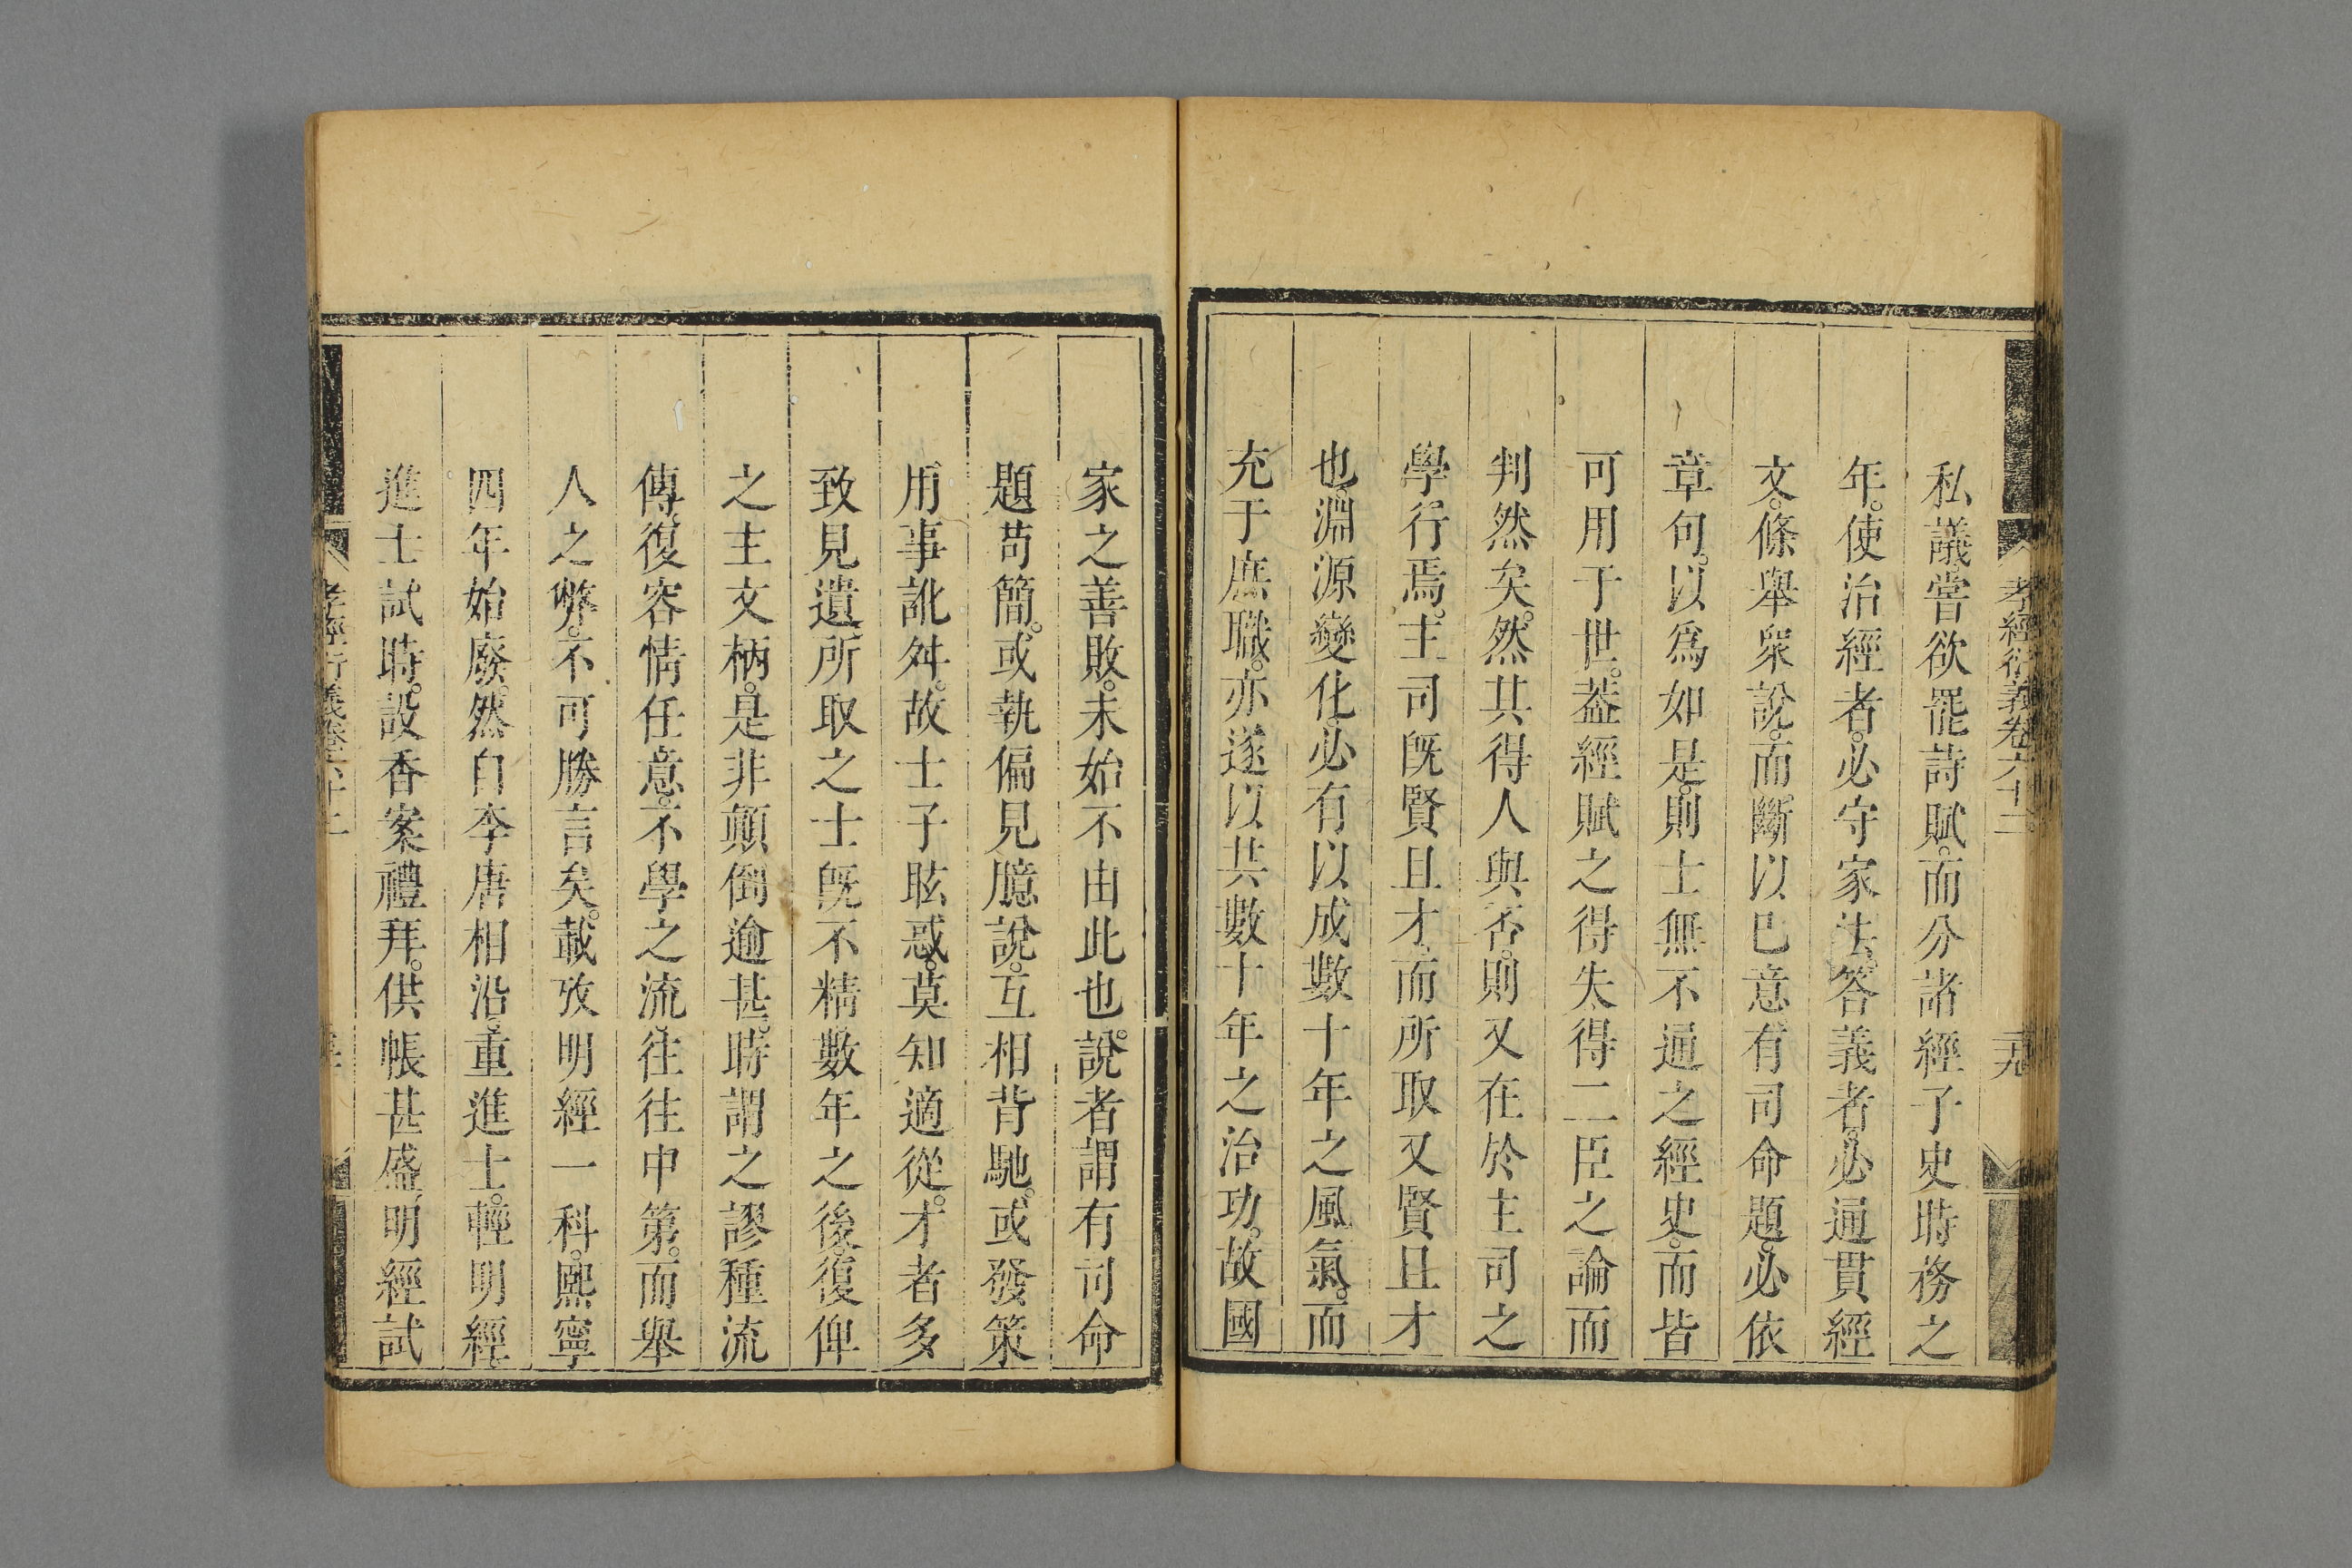 孝經衍義卷六十二
私議。嘗欲罷詩賦。而分諸經子史時務之
年。使治經者。必守家法。答義者。必通貫經
文。條舉衆說。而斷以己意。有司命題。必依
章句。以爲如是。則士無不通之經史。而皆
可用于世。葢經賦之得失。得二臣之論而
判然矣。然其得人與否。則又在於主司之
學行焉。主司旣賢且才。而所取又賢且才
也。淵源變化。必有以成數十年之風氣。而
充于庶職。亦遂以其數十年之治功。故國
家之善敗。未始不由此也。說者謂有司命
題苟簡。或執偏見臆說。互相背馳。或發策
用事訛舛。故士子眩惑。莫知適從。才者多
致見遺。所取之士旣不精。數年之後。復俾
之主文柄。是非顛倒逾甚。時謂之謬種流
傳。復容情任意。不學之流。往往中第。而舉
人之弊。不可勝言矣。載攷明經一科。熙寧
四年始廢。然自李唐相沿。重進士。輕明經。
進士試時。設香案禮拜。供帳甚盛。明經試